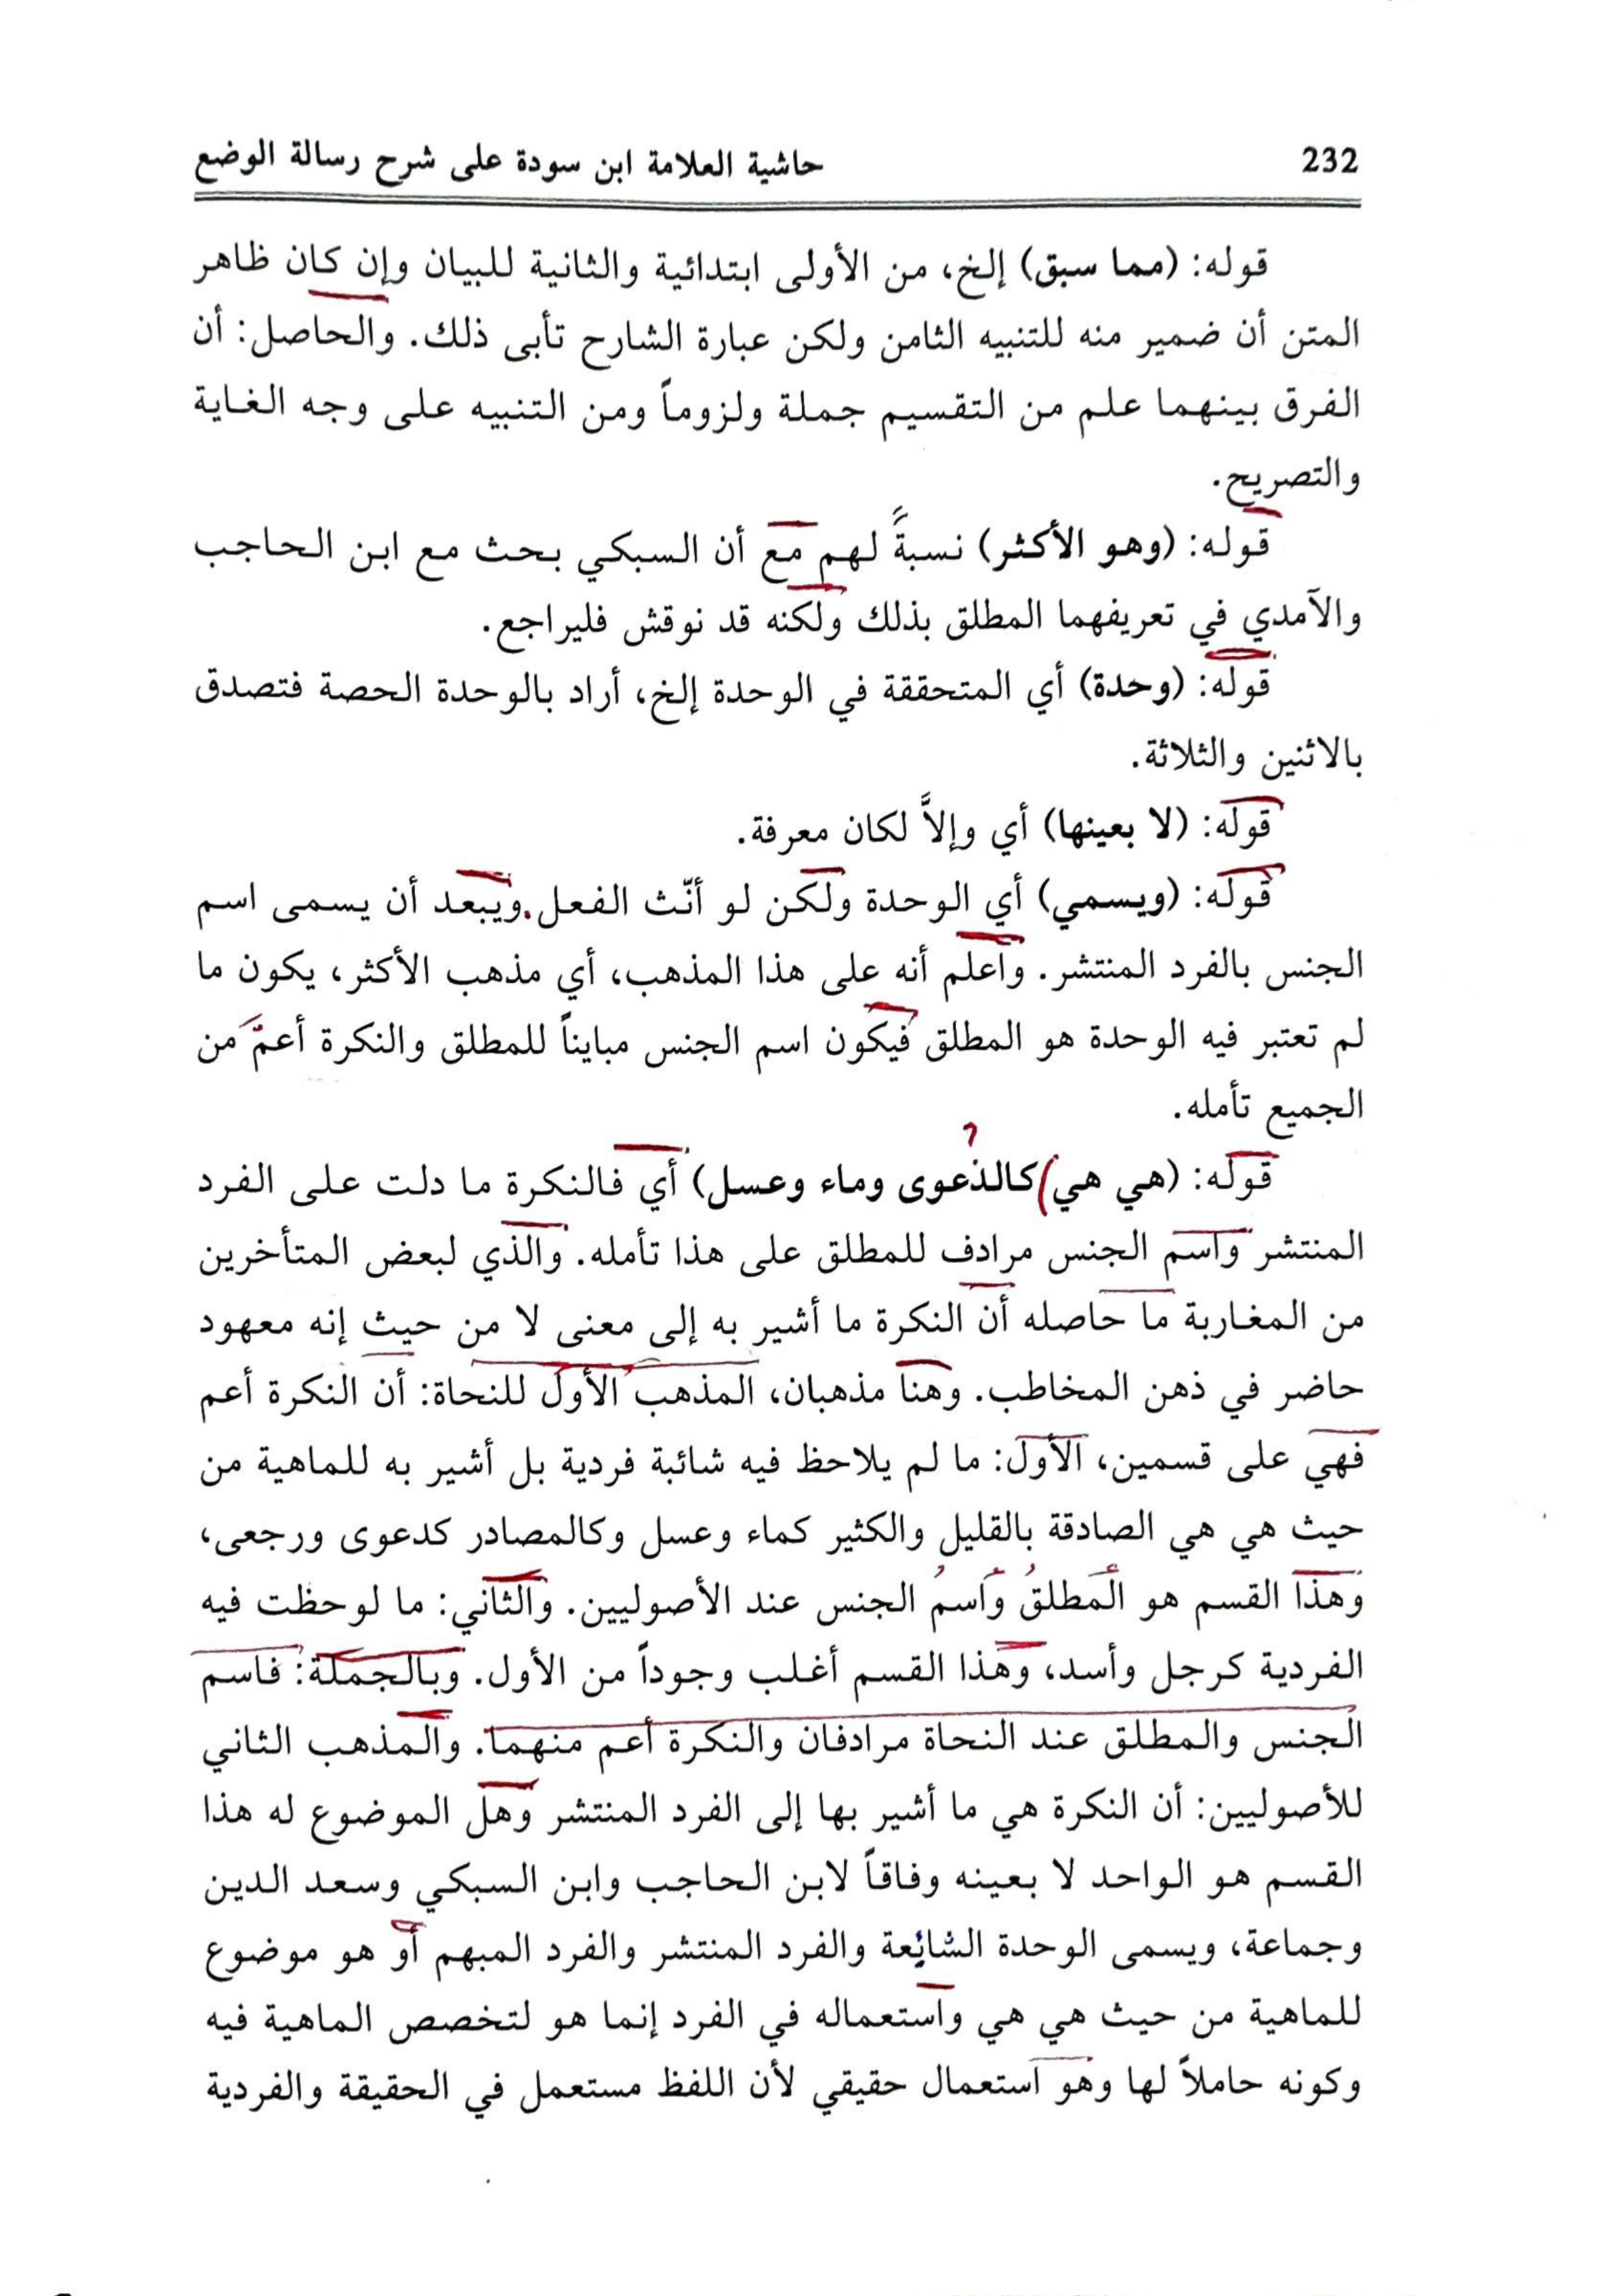 232 حاشية العلامة ابن سودة على شرح رسالة الوضع
قوله: (مما سبق) إلخ، من الأولى ابتدائية والثانية للبيان وإن كان ظاهر
المتن أن ضمير منه للتنبيه الثامن ولكن عبارة الشارح تأبى ذلك. والحاصل: أن
الفرق بينهما علم من التقسيم جملة ولزوماً ومن التنبيه على وجه الغاية
والتصريح.
قوله: (وهو الأكثر) نسبةً لهم مع أن السبكي بحث مع ابن الحاجب
والآمدي في تعريفهما المطلق بذلك ولكنه قد نوقش فليراجع.
قوله: (وحدة) أي المتحققة في الوحدة إلخ، أراد بالوحدة الحصة فتصدق
بالاثنين والثلاثة.
قوله: (لا بعينها) أي وإلاَّ لكان معرفة.
قوله: (ويسمي) أي الوحدة ولكن لو أنّث الفعل. ويبعد أن يسمى اسم
الجنس بالفرد المنتشر. واعلم أنه على هذا المذهب، أي مذهب الأكثر، يكون ما
لم تعتبر فيه الوحدة هو المطلق فيكون اسم الجنس مبايناً للمطلق والنكرة أعمَّ من
الجميع تأمله.
قوله: (هي هي) كالذعوى وماء وعسل) أي فالنكرة ما دلت على الفرد
المنتشر واسم الجنس مرادف للمطلق على هذا تأمله. والذي لبعض المتأخرين
من المغاربة ما حاصله أن النكرة ما أشير به إلى معنى لا من حيث إنه معهود
حاضر في ذهن المخاطب. وهنا مذهبان، المذهب الأول للنحاة: أن النكرة أعم
فهي على قسمين، الأول: ما لم يلاحظ فيه شائبة فردية بل أشير به للماهية من
حيث هي هي الصادقة بالقليل والكثير كماء وعسل وكالمصادر كدعوى ورجعى،
وهذا القسم هو المطلقُ واسمُ الجنس عند الأصوليين. والثاني: ما لوحظت فيه
الفردية كرجل وأسد، وهذا القسم أغلب وجوداً من الأول. وبالجملة: فاسم
الجنس والمطلق عند النحاة مرادفان والنكرة أعم منهما. والمذهب الثاني
للأصوليين: أن النكرة هي ما أشير بها إلى الفرد المنتشر وهل الموضوع له هذا
القسم هو الواحد لا بعينه وفاقاً لابن الحاجب وابن السبكي وسعد الدين
وجماعة، ويسمى الوحدة الشائعة والفرد المنتشر والفرد المبهم أو هو موضوع
للماهية من حيث هي هي واستعماله في الفرد إنما هو لتخصص الماهية فيه
وكونه حاملاً لها وهو استعمال حقيقي لأن اللفظ مستعمل في الحقيقة والفردية